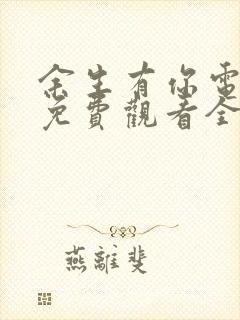 余生有你電
免費觀看全
燕離斐